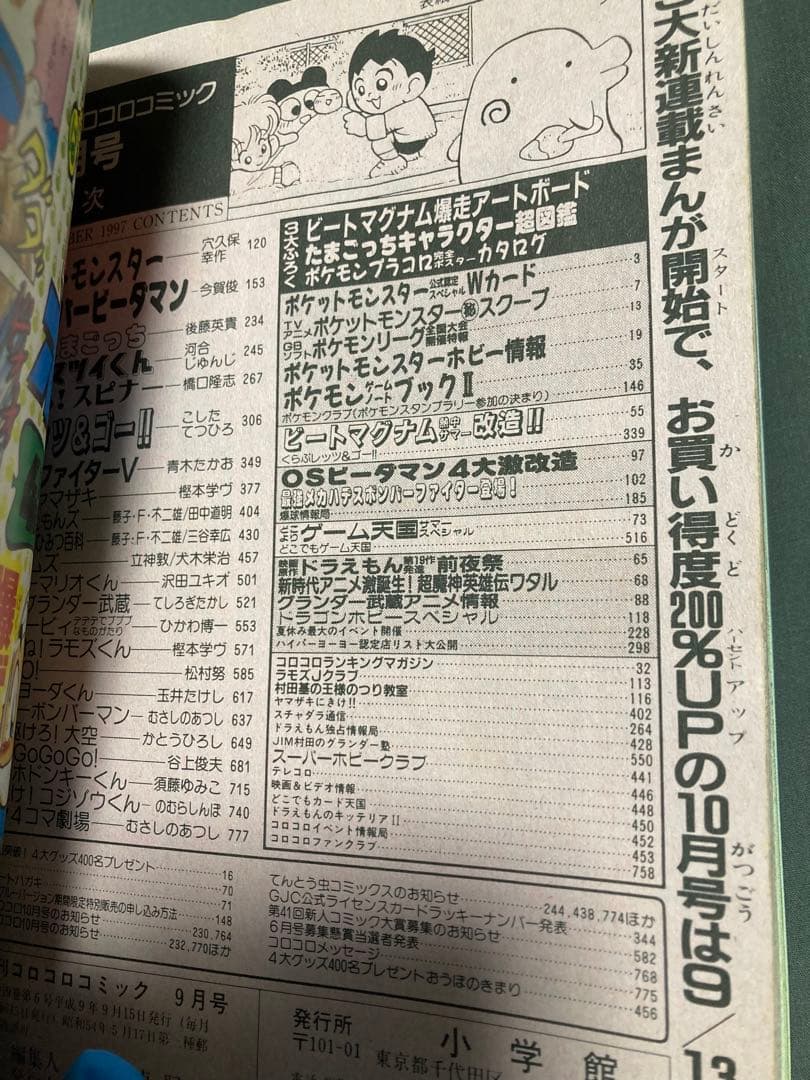 大新連載まんが開始で、お買い得度200%UPの10月号は9/13
だいしんれんさい
スタート
か
どくど
パーセント
アップ
がつごう
ロコロコミック
月号
次
BER 1997 CONTENTS
モンスター 穴久保幸作 120
ーパービーダマン 今賀俊 153
まごっち 後藤英貴 234
マツイくん 河合じゅんじ 245
！スピナー 橋口隆志 267
ツ&ゴー!! こしたてつひろ 306
ファイターV 青木たかお 349
ヤマザキ 樫本学ヴ 377
もんズ 藤子・F・不二雄/田中道明 404
ひみつ百科 藤子・F・不二雄/三谷幸広 430
ムズ 立神敦/犬木栄治 457
ーマリオくん 沢田ユキオ 501
グランダー武蔵 てしろぎたかし 521
ービィ デデデでプププなものがたり ひかわ博一 553
ね！ラモズくん 樫本学ヴ 571
O! 松村努 585
ヨーダくん 玉井たけし 617
ーボンバーマン むさしのあつし 637
駆けろ！大空 かとうひろし 649
GoGoGo! 谷上俊夫 681
ホドンキーくん 須藤ゆみこ 715
け！コジゾウくん のむらしんぼ 740
4コマ劇場 むさしのあつし 777
4大グッズ400名プレゼント 16
ートハガキ 70
71
ブルーバージョン期間限定特別販売の申し込み方法 148
コロ10月号のお知らせ 230,764
232,770ほか
3大ふろく
ビートマグナム爆走アートボード
たまごっちキャラクター超図鑑
ポケモンプラコロ完全ポスターカタログ
ポケットモンスター公式認定スペシャルWカード 3
TVアニメポケットモンスター㊙スクープ 7
GBソフトポケモンリーグ全国大会開催特報 13
ポケットモンスターホビー情報 19
ポケモンゲームノートブックII 35
ポケモンクラブ(ポケモンスタンプラリー参加の決まり) 146
ビートマグナム熱中サマー改造!! 55
くらぶレッツ&ゴー!! 339
OSビーダマン4大激改造 97
最強メカハチスボンバーファイター登場！ 102
爆球情報局 185
ゲーム天国サマースペシャル 73
どこでもゲーム天国 516
ドラえもん第19作発進前夜祭 65
新時代アニメ激誕生！超魔神英雄伝ワタル 68
グランダー武蔵アニメ情報 88
ドラゴンホビースペシャル 118
夏休み最大のイベント開催 228
ハイパーヨーヨー認定店リスト大公開 298
コロコロランキングマガジン 32
ラモズJクラブ 113
村田基の王様のつり教室 116
ヤマザキにきけ!! 402
スチャダラ通信 264
ドラえもん独占情報局 428
JIM村田のグランダー塾 550
スーパーホビークラブ 441
テレコロ 446
映画&ビデオ情報 448
どこでもカード天国 450
ドラえもんのキッテリアII 452
コロコロイベント情報局 453
コロコロファンクラブ 758
てんとう虫コミックスのお知らせ 244,438,774ほか
GJC公式ライセンスカードラッキーナンバー発表 344
第41回新人コミック大賞募集のお知らせ 582
6月号募集懸賞当選者発表 768
コロコロメッセージ 775
4大グッズ400名プレゼントおうぼのきまり 456
コロコロコミック 9月号
第6号平成9年9月15日発行(毎月
昭和54年5月17日第三種郵
編集人
発行所 小学館
〒101-01 東京都千代田区